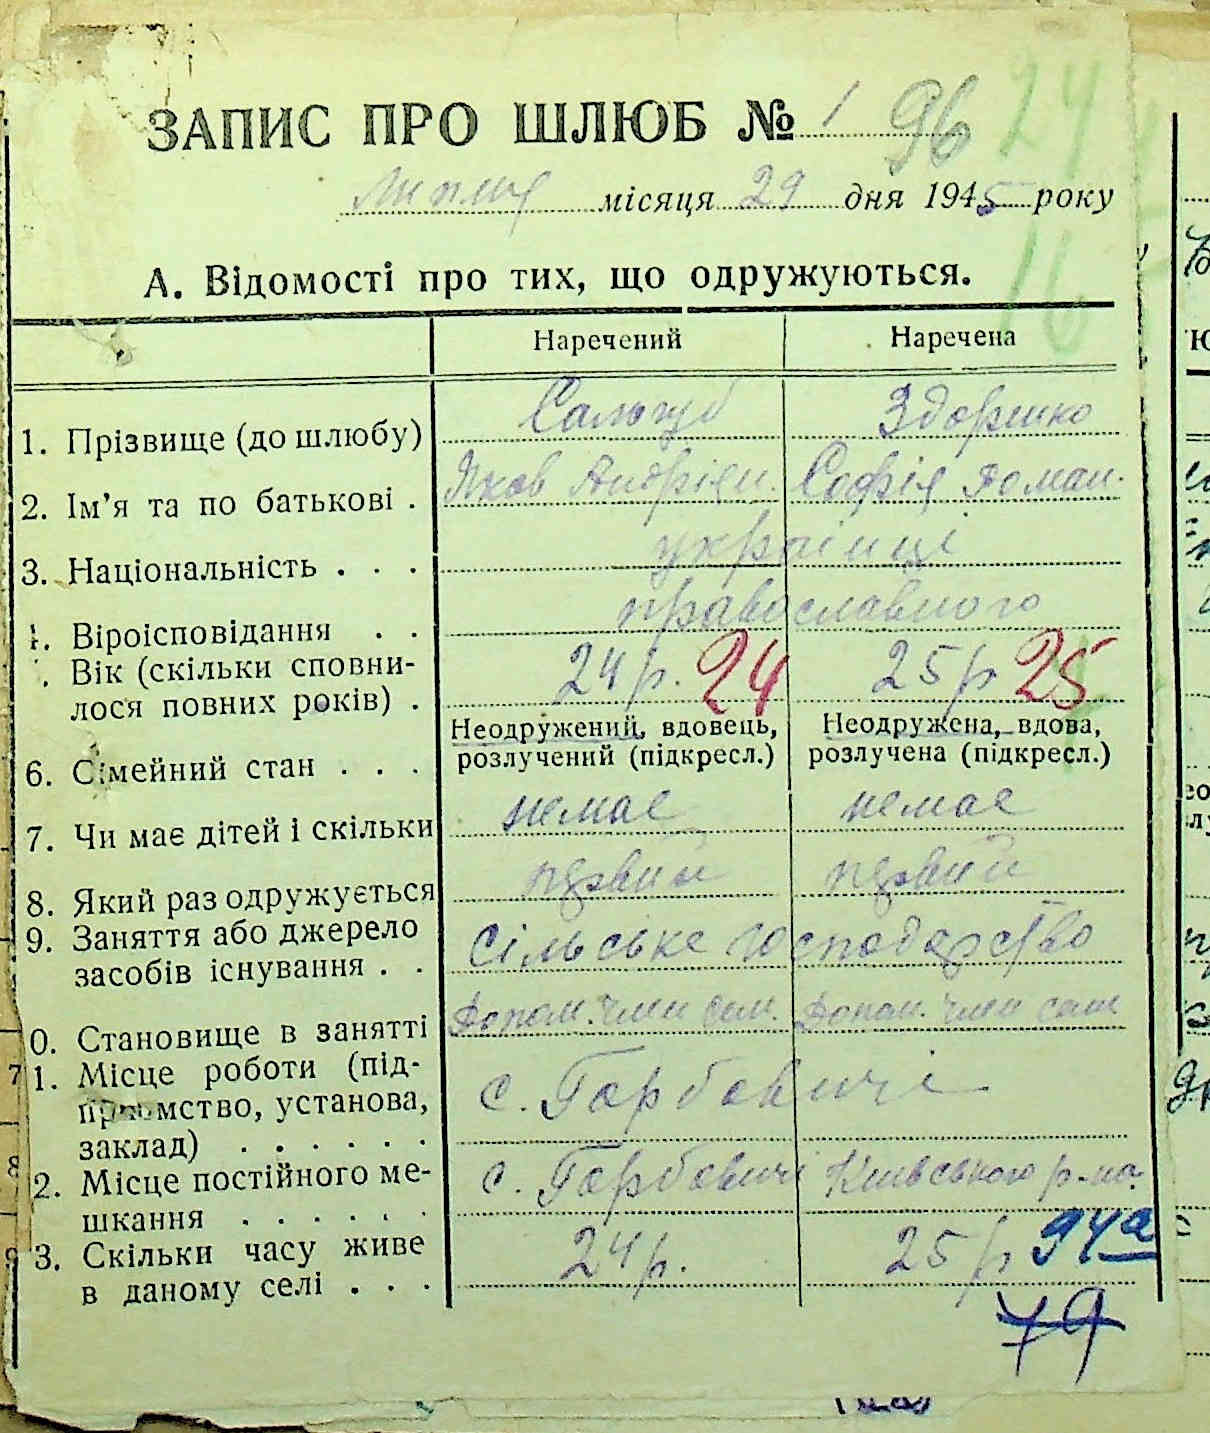 ЗАПИС ПРО ШЛЮБ № 1 96 24
Липня місяця 29 дня 1945 року
16
А. Відомості про тих, що одружуються.
Наречений Наречена
1. Прізвище (до шлюбу) Сальгуб Здоренко
2. Ім’я та по батькові . Яков Андрієв. Софія Роман.
3. Національність . . . українці
Віроісповідання . . православного
Вік (скільки сповни-
лося повних років) . 24 р. 24 25 р 25
Неодружений, вдовець, Неодружена, вдова,
розлучений (підкресл.) розлучена (підкресл.)
6. Сімейний стан . . .
7. Чи має дітей і скільки немає немає
8. Який раз одружується первий первий
9. Заняття або джерело
засобів існування . . Сільське господарство
0. Становище в занятті Допом. член сем. Допом. член сем
1. Місце роботи (під-
приємство, установа,
заклад) . . . . . . с. Горбовичі
2. Місце постійного ме-
шкання . . . . . . с. Горбовичі Київського р-на
3. Скільки часу живе
в даному селі . . . 24 р. 25 р 94а
79